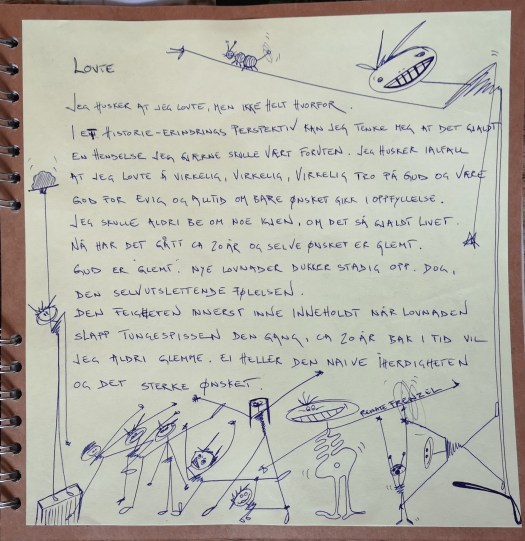 LOVTE
JEG HUSKER AT JEG LOVTE, MEN IKKE HELT HVORFOR.
I ET HISTORIE-ERINDRINGS PERSPEKTIV KAN JEG TENKE MEG AT DET GJALDT
EN HENDELSE JEG GJÆRNE SKULLE VÆRT FORUTEN. JEG HUSKER IALFALL
AT JEG LOVTE Å VIRKELIG, VIRKELIG, VIRKELIG TRO PÅ GUD OG VÆRE
GOD FOR EVIG OG ALLTID OM BARE ØNSKET GIKK I OPPFYLLELSE.
JEG SKULLE ALDRI BE OM NOE IGJEN, OM DET SÅ GJALDT LIVET.
NÅ HAR DET GÅTT CA 20 ÅR OG SELVE ØNSKET ER GLEMT.
GUD ER GLEMT. NYE LOVNADER DUKKER STADIG OPP. DOG,
DEN SELVUTSLETTENDE FØLELSEN.
DEN FEIGHETEN INNERST INNE INNEHOLDT NÅR LOVNADEN
SLAPP TUNGESPISSEN DEN GANG, CA 20 ÅR BAK I TID VIL
JEG ALDRI GLEMME. EI HELLER DEN NAIVE IHERDIGHETEN
OG DET STERKE ØNSKET.
RENATE FRENZEL